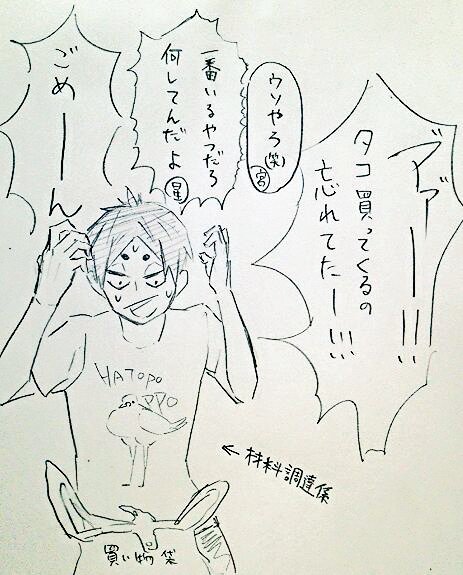 ヴァァーー!!!
タコ買ってくるの
忘れてたー!!!
ウソやろ(笑)
宮
一番いるやつだろ
何してんだよ
星
ごめーーん
HATOPO
PPO
←材料調達係
買い物袋